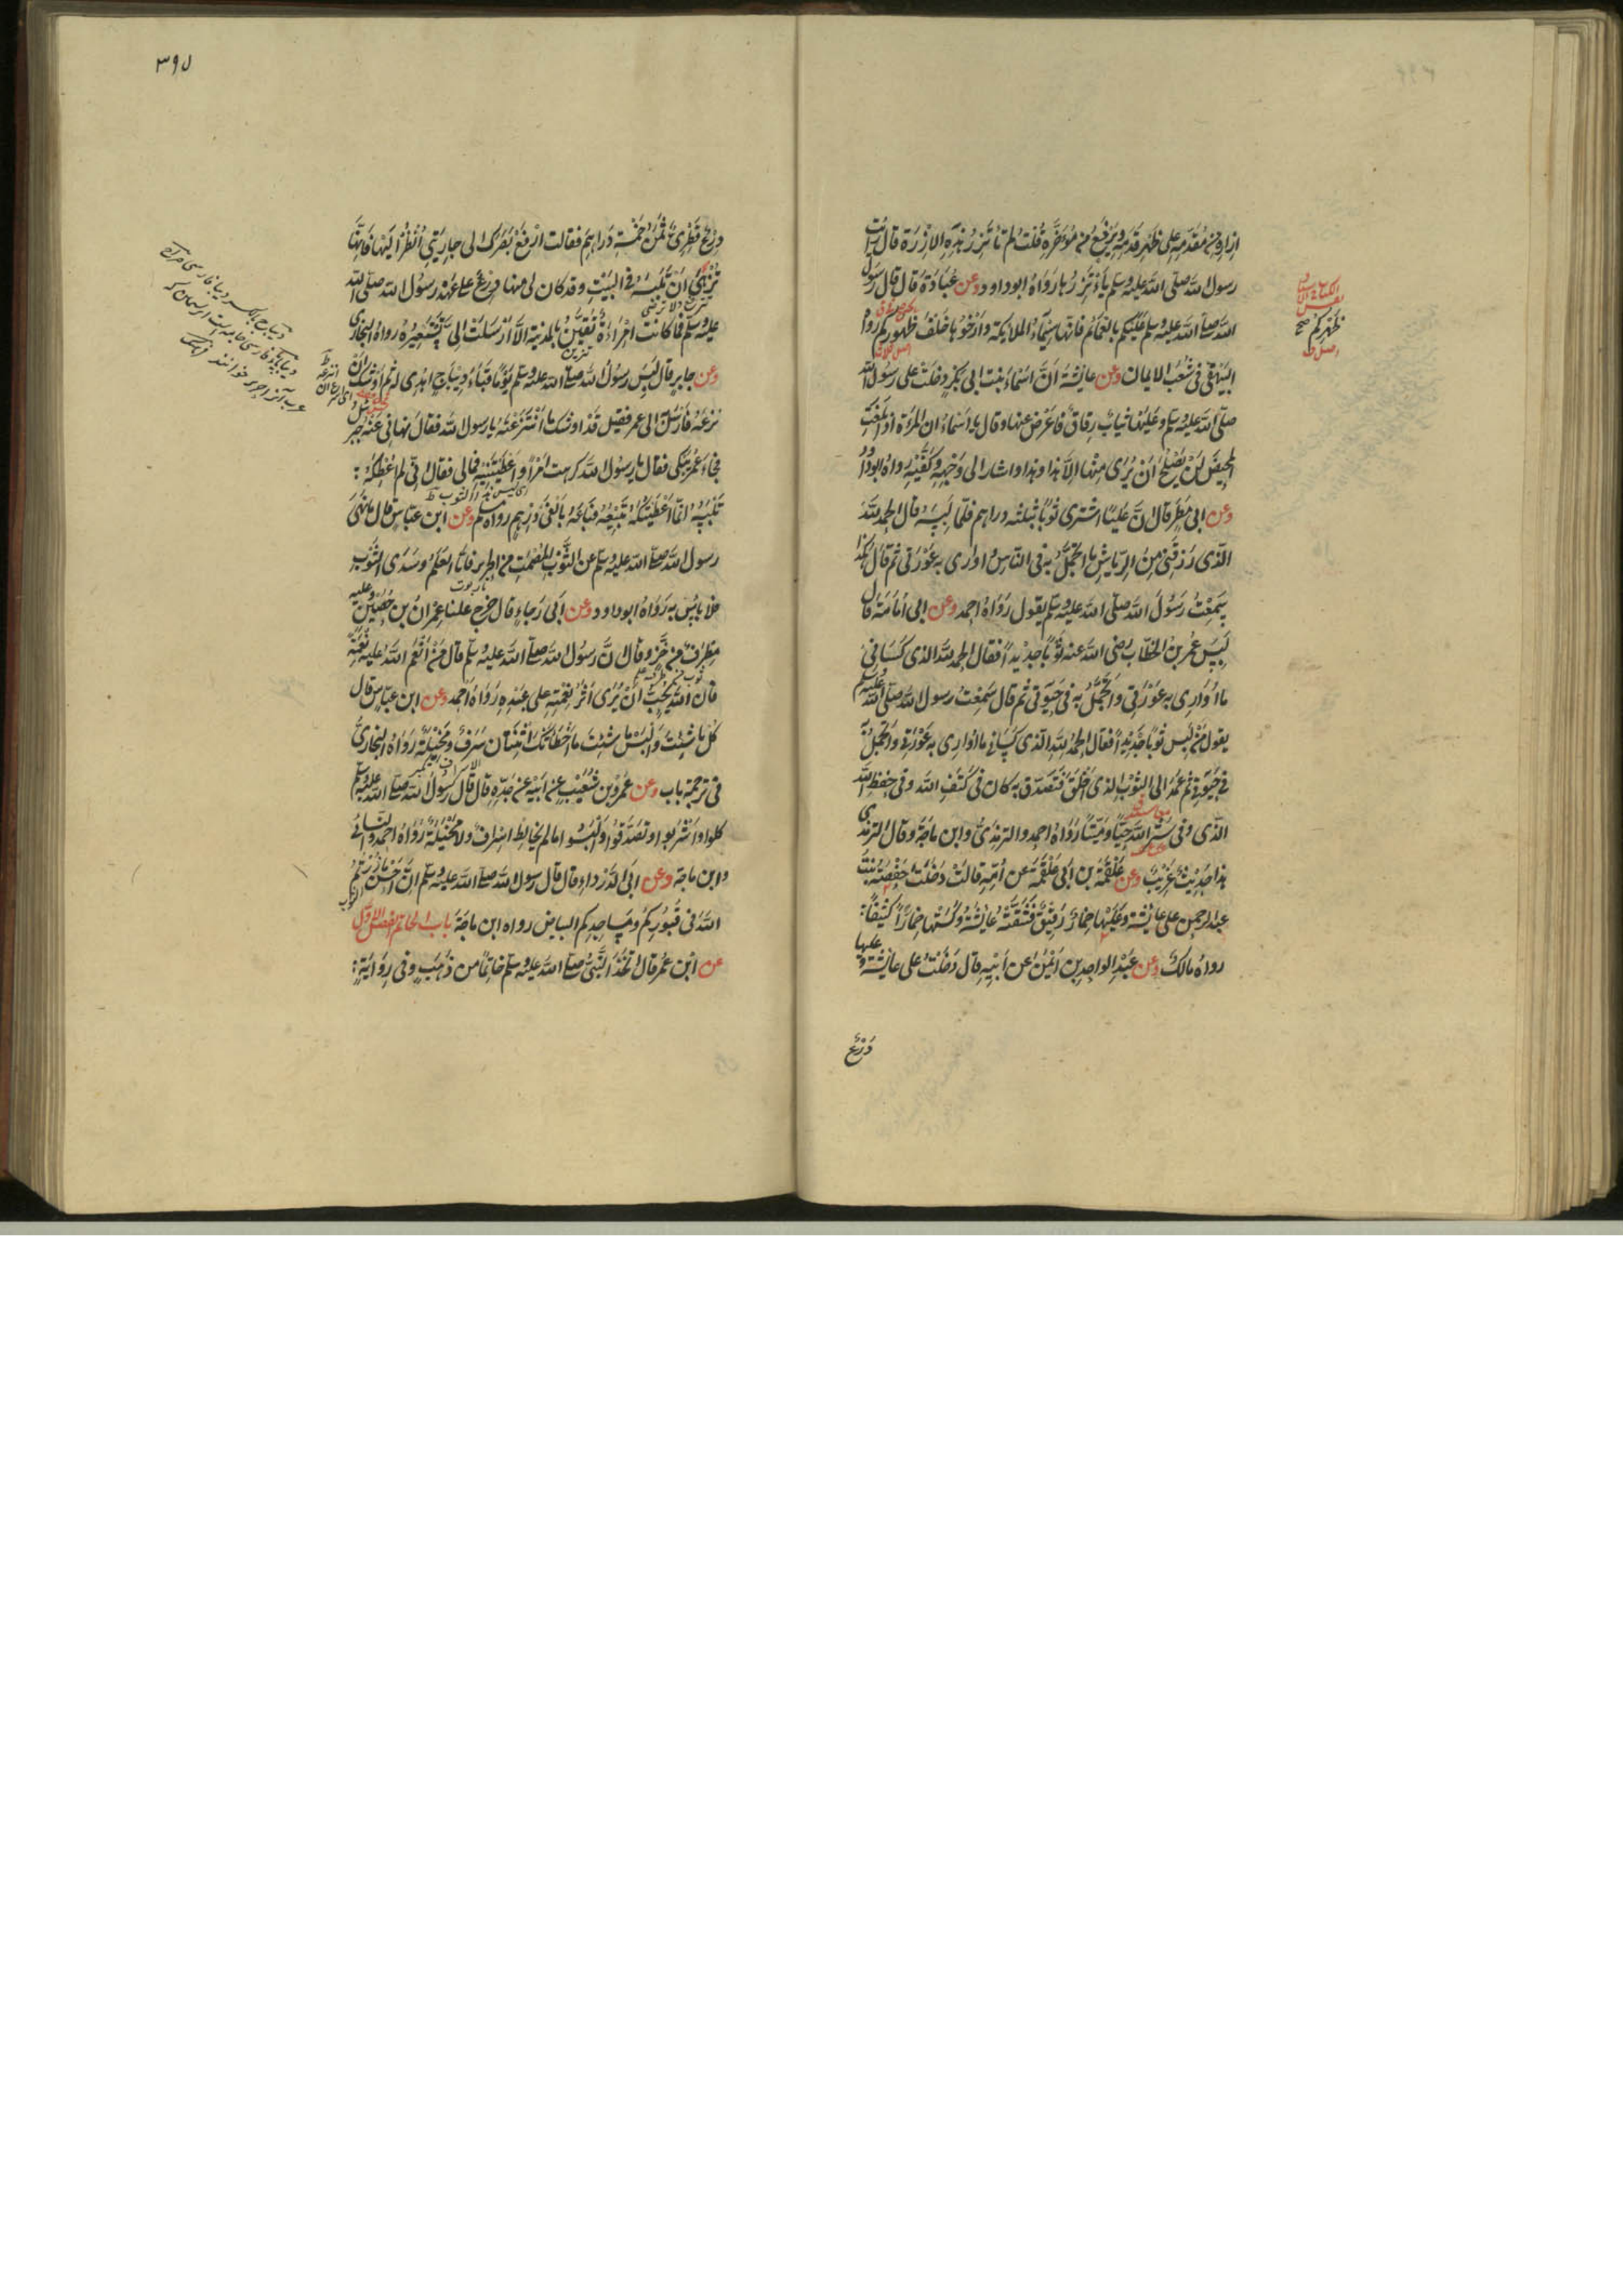 ازاره من مقدمه على ظهر قدمه ويرفع من مؤخره قلت لم تأتزر هذه الازرة قال رايت
رسول الله صلى الله عليه وسلم يأتزرها رواه ابو داود وعن عبادة قال قال رسول
الله صلى الله عليه وسلم عليكم بالعمائم فانها سيماء الملايكة وارخوها خلف ظهوركم رواه
البيهقى فى شعب الايمان وعن عايشة ان اسماء بنت ابى بكر دخلت على رسول الله
صلى الله عليه وسلم وعليها ثياب رقاق فاعرض عنها وقال يا اسماء ان المرءة اذا بلغت
المحيض لن يصلح ان يرى منها الا هذا وهذا واشار الى وجهه وكفيه رواه ابو داود
وعن ابى مطر قال ان عليا اشترى ثوبا بثلثه دراهم فلما لبسه قال الحمد لله
الذى رزقنى من الرياش ما اتجمل به فى الناس واوارى به عورتى ثم قال هكذا
سمعت رسول الله صلى الله عليه وسلم يقول رواه احمد وعن ابى امامة قال
لبس عمر بن الخطاب رضى الله عنه ثوبا جديدا فقال الحمد لله الذى كسانى
ما اوارى به عورتى واتجمل به فى حيوتى ثم قال سمعت رسول الله صلى الله عليه وسلم
يقول من لبس ثوبا جديدا فقال الحمد لله الذى كسانى ما اوارى به عورتى واتجمل به
فى حيوتى ثم عمد الى الثوب الذى اخلق فتصدق به كان فى كنف الله وفى حفظ الله
الذى وفى ستر الله حيا وميتا رواه احمد والترمذى وابن ماجة وقال الترمذى
هذا حديث غريب وعن علقمة بن ابى علقمة عن امه قالت دخلت حفصة بنت
عبد الرحمن على عايشة وعليها خمار رقيق فشقته عايشة وكستها خمارا كثيفا
رواه مالك وعن عبد الواحد بن ايمن عن ابيه قال دخلت على عايشة وعليها
درع
ظهركم صح
٣٩٧
درع قطرى ثمن خمسة دراهم فقالت ارفع بصرك الى جاريتى انظر اليها فانها
تزهى ان تلبسه فى البيت وقد كان لى منها درع على عهد رسول الله صلى الله
عليه وسلم فما كانت امراءة تقين بالمدينة الا ارسلت الى تستعيره رواه البخارى
وعن جابر قال لبس رسول الله صلى الله عليه وسلم يوما قباء ديباج اهدى له ثم اوشك ان
نزعه فارسل الى عمر فقيل قد اوشك ما انتزعته يا رسول الله فقال نهانى عنه جبريل
فجاء عمر يبكى فقال يا رسول الله كرهت امرا واعطيتنيه فمالى فقال انى لم اعطكه
تلبسه انما اعطيتكه تبيعه فباعه بالفى درهم رواه مسلم وعن ابن عباس قال انما نهى
رسول الله صلى الله عليه وسلم عن الثوب المصمت من الحرير فاما العلم وسدى الثوب
فلا بأس به رواه ابو داود وعن ابى رجاء قال خرج علينا عمران بن حصين وعليه
مطرف من خز وقال ان رسول الله صلى الله عليه وسلم قال من انعم الله عليه نعمة
فان الله يحب ان يرى اثر نعمته على عبده رواه احمد وعن ابن عباس قال
كل ما شئت والبس ما شئت ما اخطاتك اثنتان سرف ومخيلة رواه البخارى
فى ترجمة باب وعن عمرو بن شعيب عن ابيه عن جده قال قال رسول الله صلى الله عليه وسلم
كلوا واشربوا وتصدقوا والبسوا ما لم يخالط اسراف ولا مخيلة رواه احمد والنسائى
وابن ماجة وعن ابى الدرداء قال قال رسول الله صلى الله عليه وسلم ان احسن ما زرتم
الله فى قبوركم ومساجدكم البياض رواه ابن ماجة باب الخاتم الفصل الاول
عن ابن عمر قال اتخذ النبى صلى الله عليه وسلم خاتما من ذهب وفى رواية